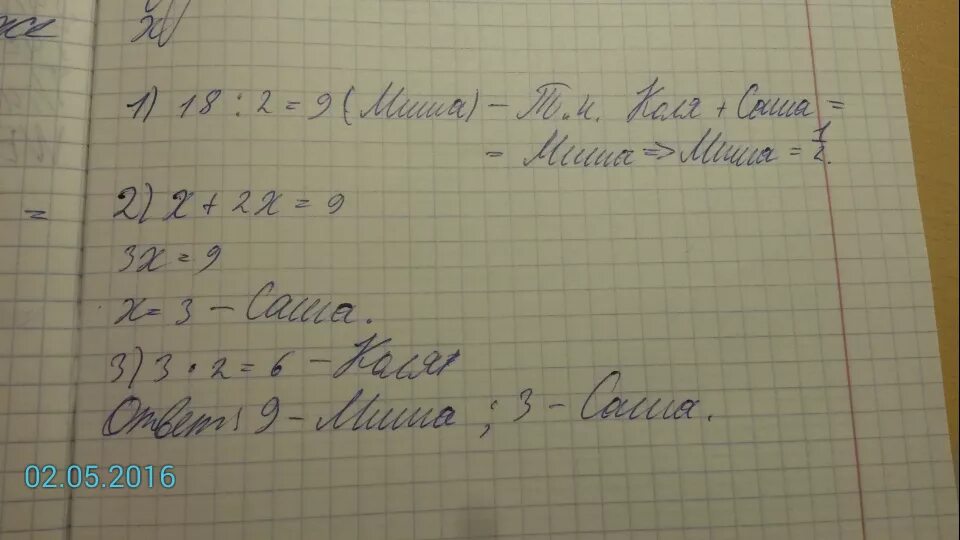 1) 18 : 2 = 9 (Миша) – Т.к. Коля + Саша =
= Миша => Миша = 1/2.
=
2) x + 2x = 9
3x = 9
x = 3 – Саша.
3) 3 · 2 = 6 – Коля
Ответ: 9 – Миша ; 3 – Саша.
02.05.2016